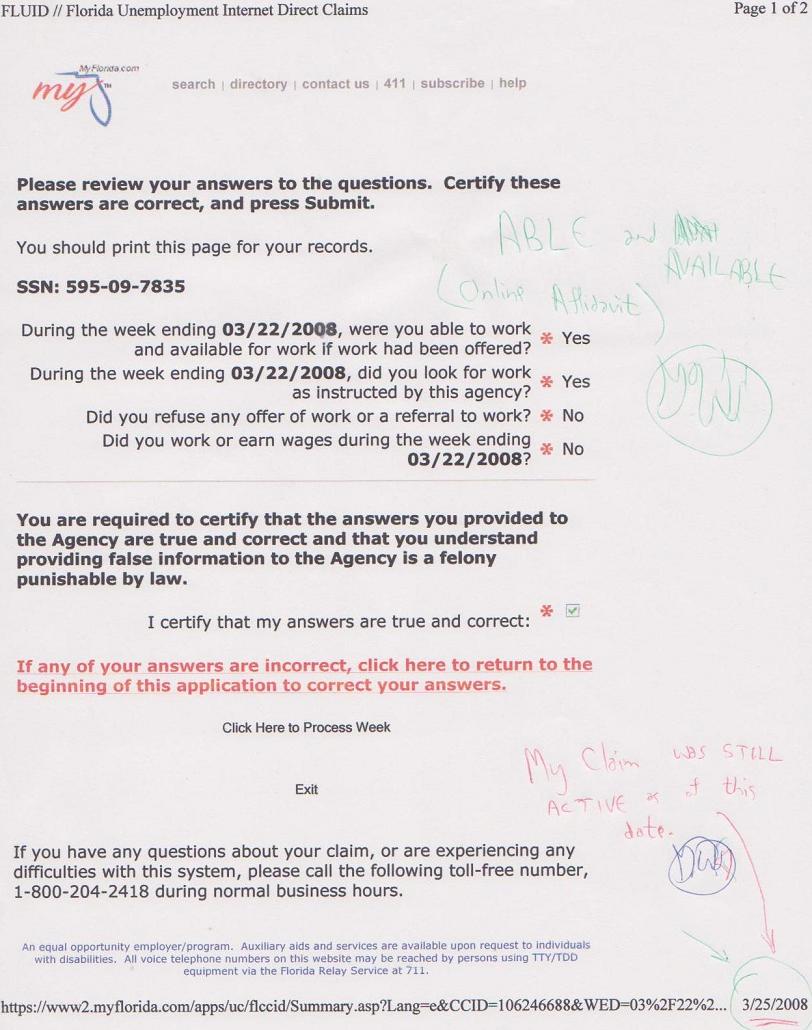 FLUID // Florida Unemployment Internet Direct Claims
Page 1 of 2
MyFlorida.com
my
search | directory | contact us | 411 | subscribe | help
Please review your answers to the questions. Certify these
answers are correct, and press Submit.
You should print this page for your records.
ABLE and
AVAILABLE
(Online Affidavit)
SSN: 595-09-7835
During the week ending 03/22/2008, were you able to work
and available for work if work had been offered? * Yes
During the week ending 03/22/2008, did you look for work
as instructed by this agency? * Yes
Did you refuse any offer of work or a referral to work? * No
Did you work or earn wages during the week ending
03/22/2008? * No
You are required to certify that the answers you provided to
the Agency are true and correct and that you understand
providing false information to the Agency is a felony
punishable by law.
I certify that my answers are true and correct: *
If any of your answers are incorrect, click here to return to the
beginning of this application to correct your answers.
Click Here to Process Week
My Claim WAS STILL
ACTIVE as of this
date.
Exit
If you have any questions about your claim, or are experiencing any
difficulties with this system, please call the following toll-free number,
1-800-204-2418 during normal business hours.
An equal opportunity employer/program. Auxiliary aids and services are available upon request to individuals
with disabilities. All voice telephone numbers on this website may be reached by persons using TTY/TDD
equipment via the Florida Relay Service at 711.
https://www2.myflorida.com/apps/uc/flccid/Summary.asp?Lang=e&CCID=106246688&WED=03%2F22%2... 3/25/2008